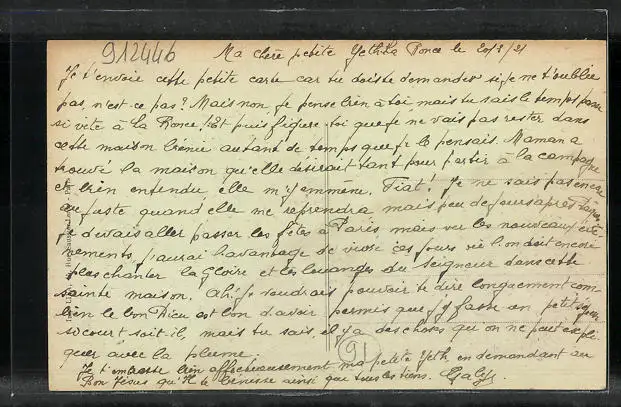 912446
Ma chère petite Yeth La Ronce le 20/3/21
Je t'envoie cette petite carte car tu dois te demander si je ne t'oublie
pas, n'est-ce pas? Mais non je pense bien à toi, mais tu sais le temps passe
si vite à la Ronce! Et puis figure-toi que je ne vais pas rester dans
cette maison bénie autant de temps que je le pensais. Maman a
trouvé la maison qu'elle désirait tant pour partir à la campagne
et bien entendu elle m'y emmène. Fiat! Je ne sais pas encore
au juste quand elle me reprendra mais peu de jours après
je devais aller passer les fêtes à Paris mais vu les nouveaux évé
nements, j'aurai l'avantage de vivre ces jours où l'on doit encore
plus chanter la Gloire et les louanges du Seigneur dans cette
sainte maison. Ah! Je voudrais pouvoir te dire longuement com-
bien le bon Dieu est bon d'avoir permis que j'y fasse un petit séjour
si court soit il, mais tu sais il y a des choses qu'on ne peut expli
quer avec la plume.
Je t'embrasse bien affectueusement ma petite Yeth en demandant au
Bon Jésus qu'Il te bénisse ainsi que tous les tiens.
91